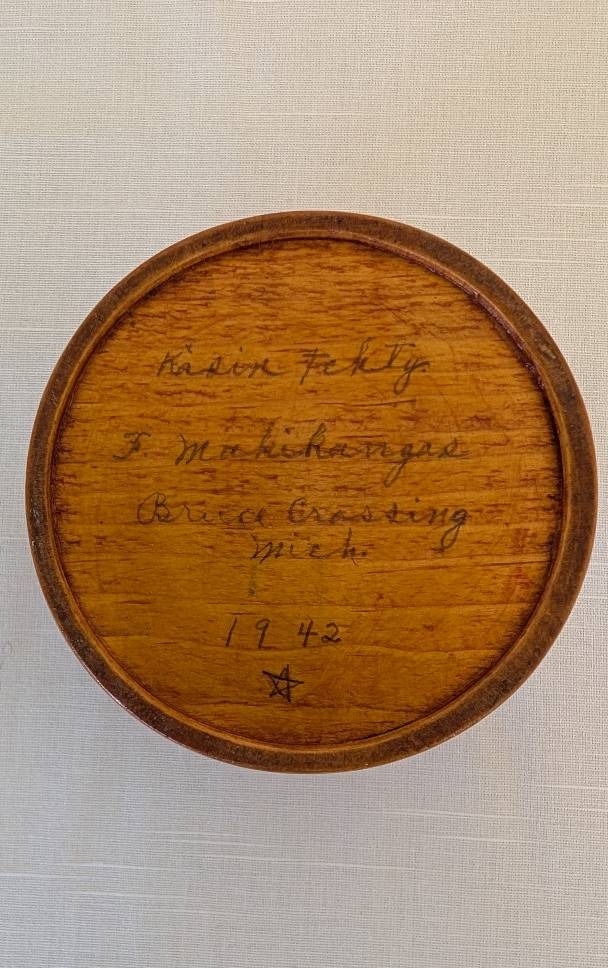 Käsin Tehty.
F. Makikangas
Bruce Crossing
Mich.
1942